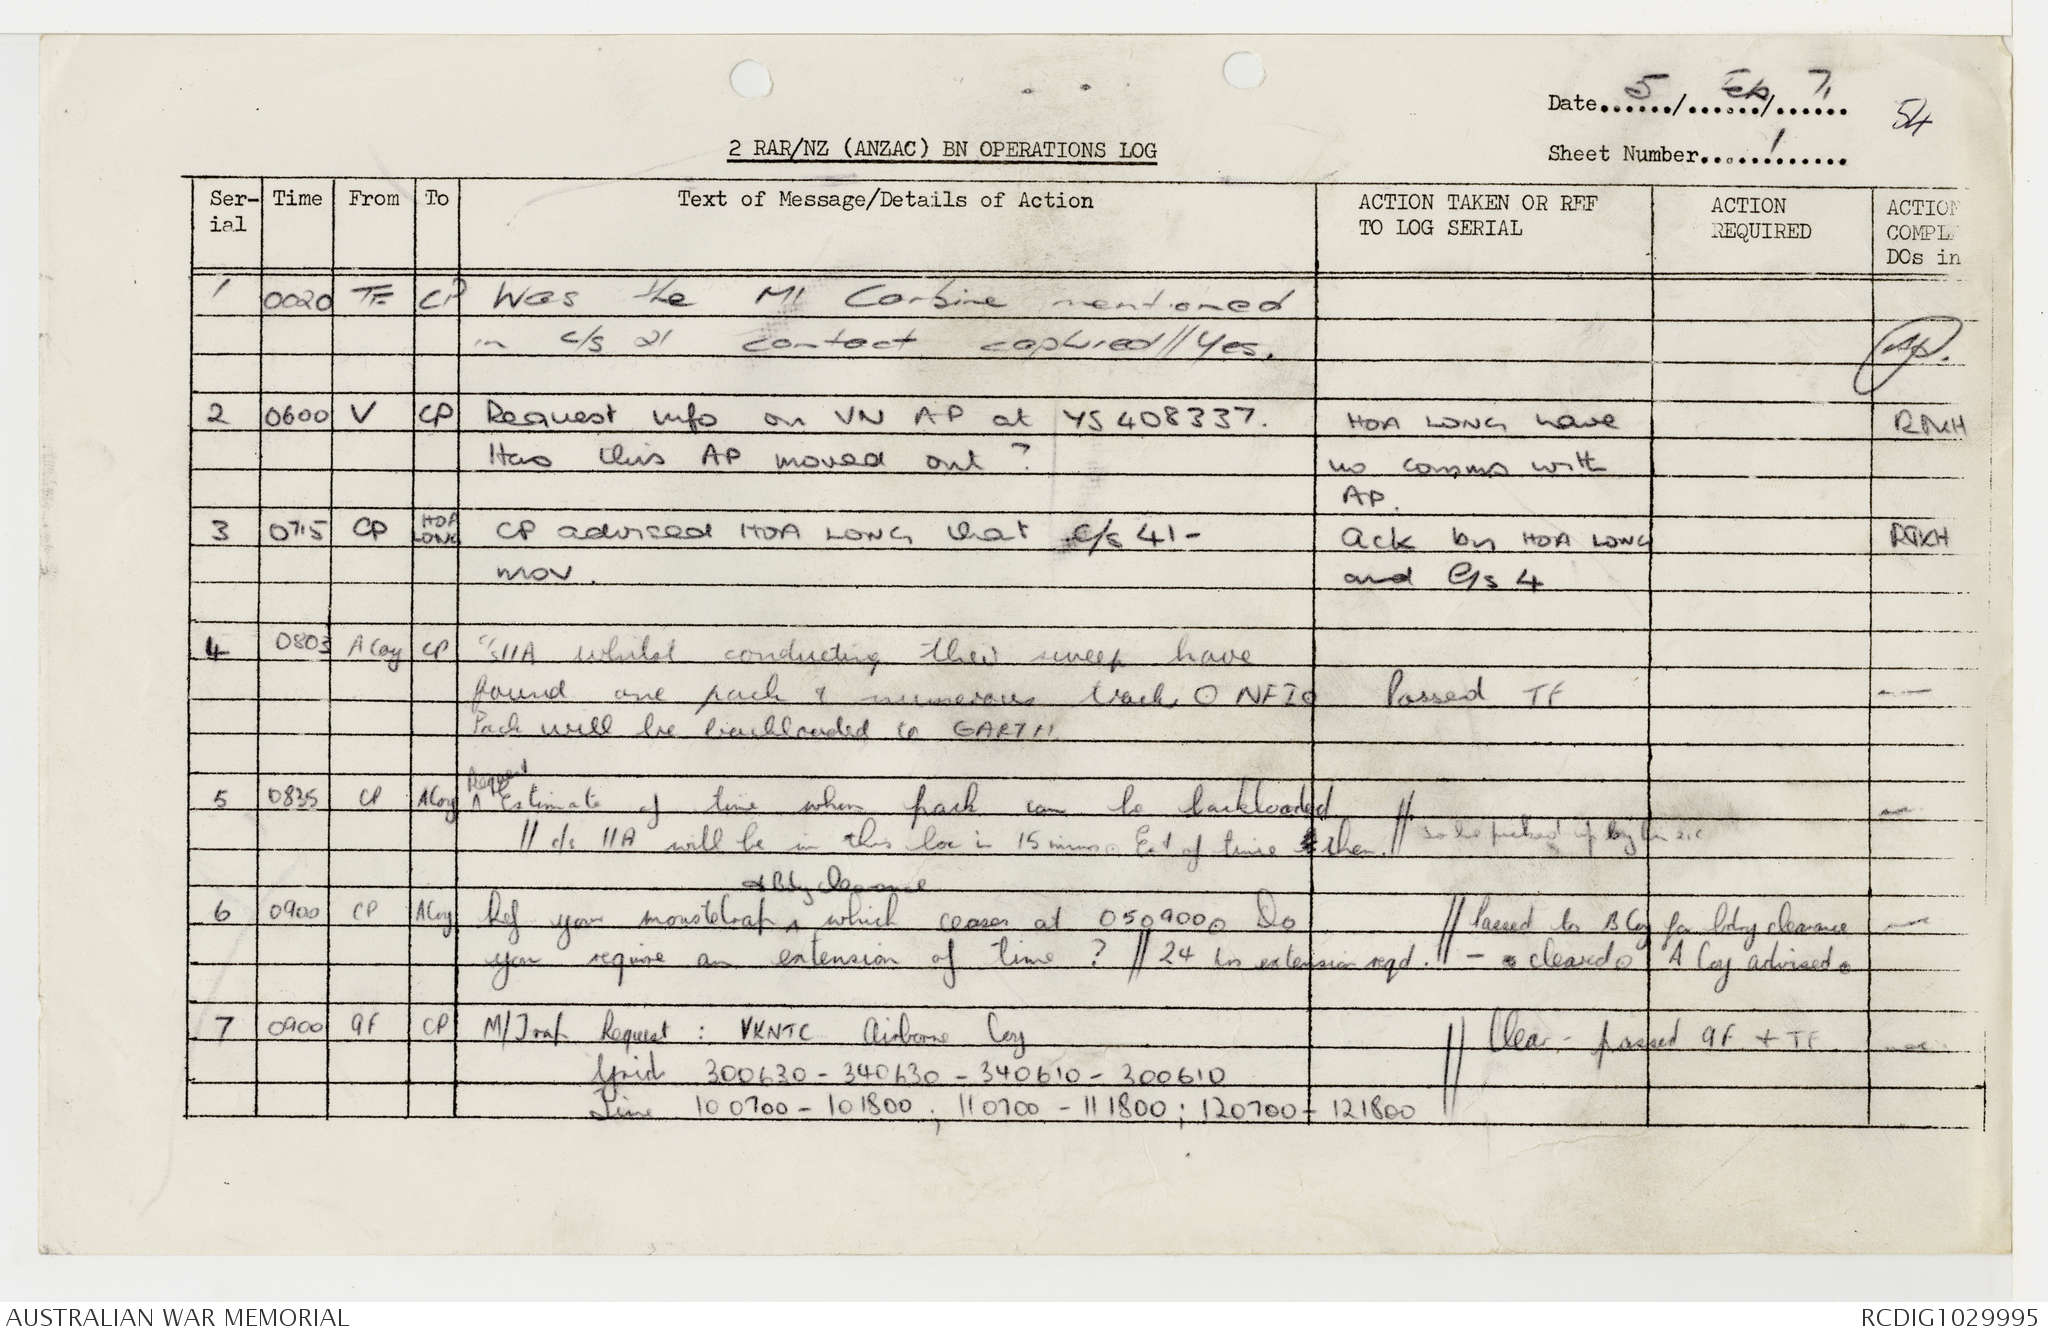 Date 5 / Feb / 71
54
2 RAR/NZ (ANZAC) BN OPERATIONS LOG
Sheet Number 1
Ser- Time From To Text of Message/Details of Action ACTION TAKEN OR REF ACTION ACTION
ial TO LOG SERIAL REQUIRED COMPL
DOs in
1 0020 TF CP Was the M1 Carbine mentioned
in c/s 21 contact captured // Yes.
2 0600 V CP Request info on VN AP at YS 408337. HOA LONG have
Has this AP moved out? no comms with
AP.
3 0715 CP HOA LONG CP advised HOA LONG that c/s 41 - Ack by HOA LONG
mov. and C/s 4
4 0803 A Coy CP C/s 11A whilst conducting their sweep have
found one pack & numerous tracks O NFI o Passed TF
Pack will be backloaded to GARTH
Request
5 0835 CP A Coy ^ Estimate of time when pack can be backloaded //
// c/s 11A will be in this loc in 15 mins o Est of time then. // to be picked up by
& Bdy clearance
6 0900 CP A Coy Ref your mousetrap ^ which ceases at 050900 o Do // Passed to B Coy for bdry clearance
you require an extension of time? // 24 hrs extension reqd. // - cleared o A Coy advised o
7 0900 9F CP M/Trap Request : VKNTC Airborne Coy // Clear - passed 9F + TF
Grid 300630 - 340630 - 340610 - 300610
Time 100700 - 101800 ; 110700 - 111800 ; 120700 - 121800
AUSTRALIAN WAR MEMORIAL RCDIG1029995